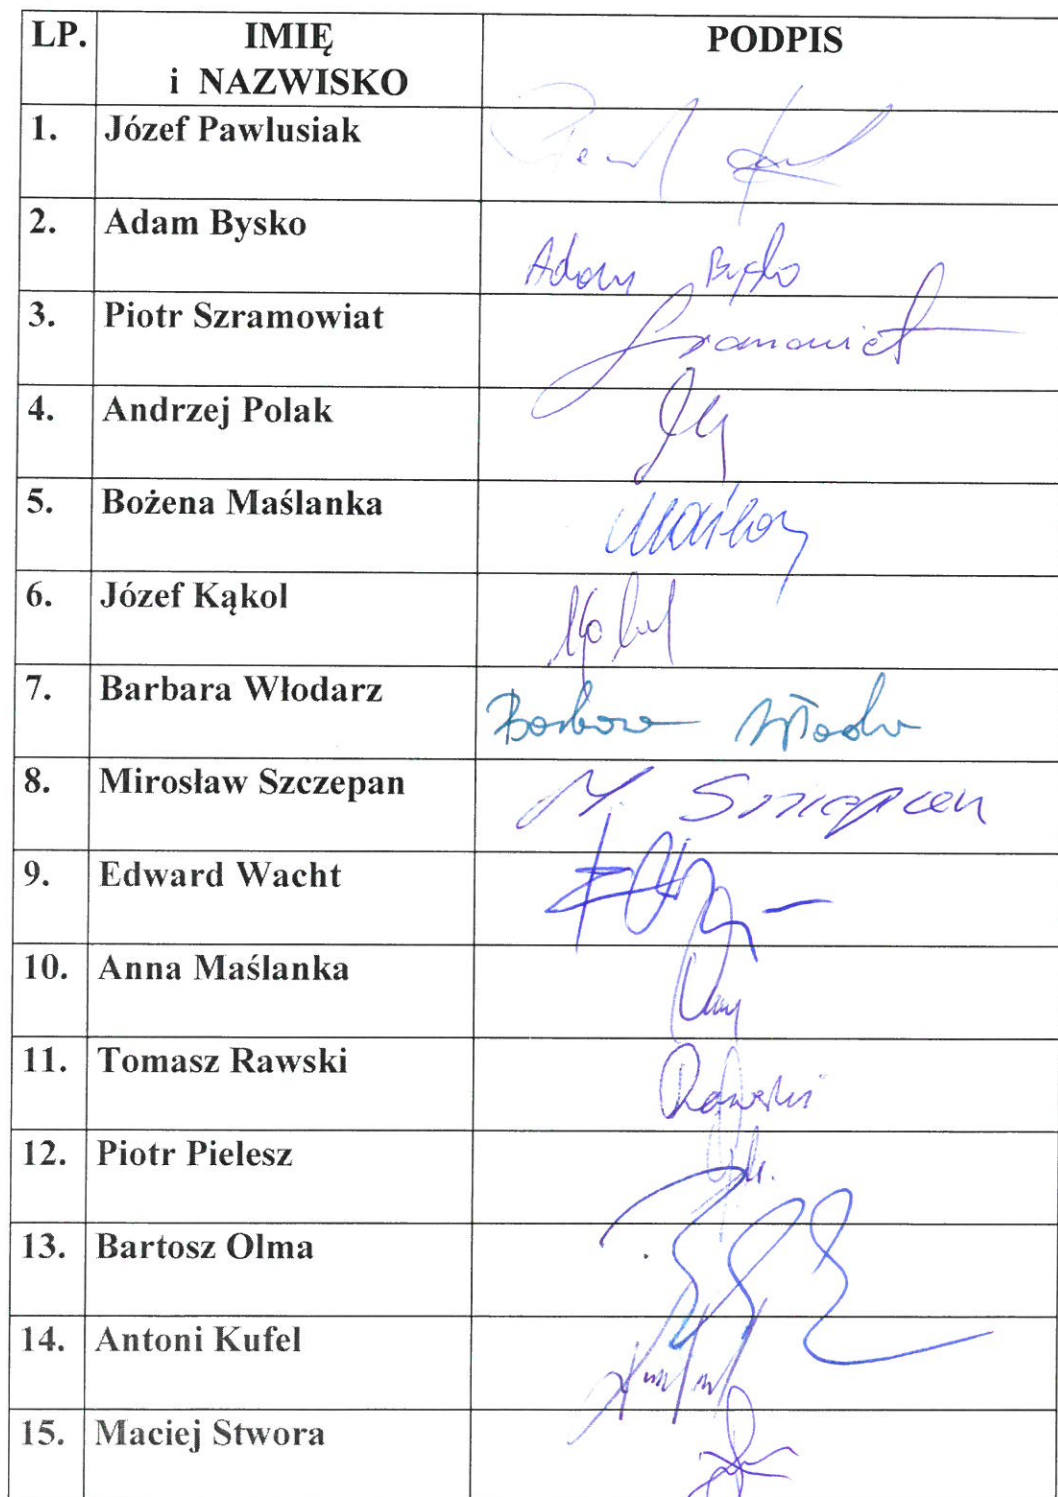 LP. IMIĘ PODPIS
i NAZWISKO
1. Józef Pawlusiak
2. Adam Bysko Adam Bysko
3. Piotr Szramowiat Szramowiat
4. Andrzej Polak
5. Bożena Maślanka
6. Józef Kąkol Kąkol
7. Barbara Włodarz Barbara Włodarz
8. Mirosław Szczepan M. Szczepan
9. Edward Wacht
10. Anna Maślanka
11. Tomasz Rawski Rawski
12. Piotr Pielesz
13. Bartosz Olma
14. Antoni Kufel
15. Maciej Stwora